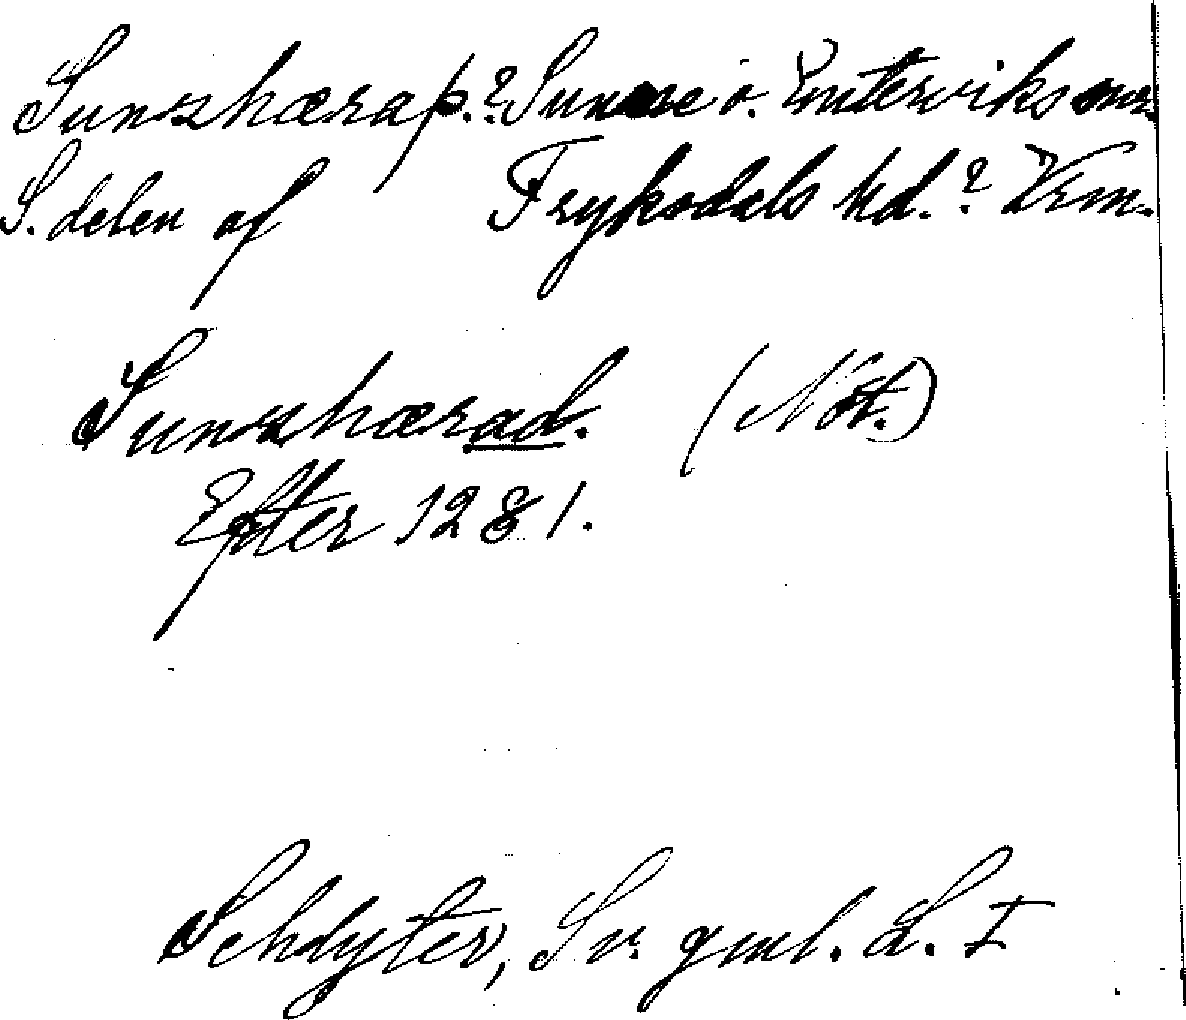 Sunshæraþ.? Sunne o. Emterviks snr
S. delen af Fryksdals hd.? Vrm.
Sunshærad. (Not.)
Efter 1281.
Schlyter, Sv. gml. L. I